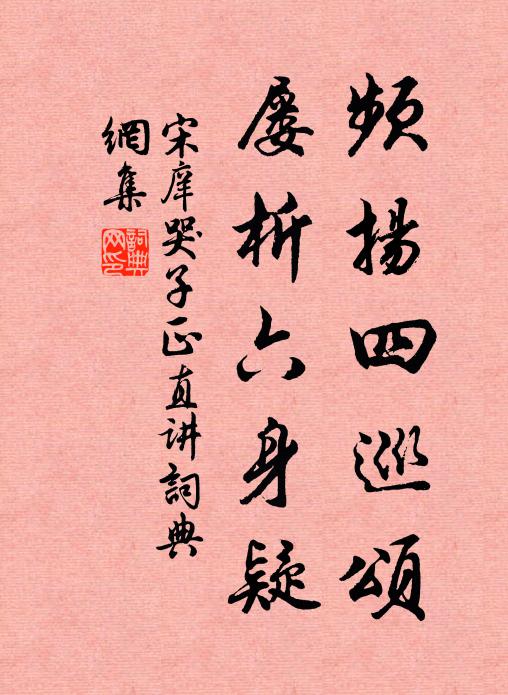 頻揚四巡頌
屡析六身疑
宋庠哭子正直讲詞典
網集
詞典網印